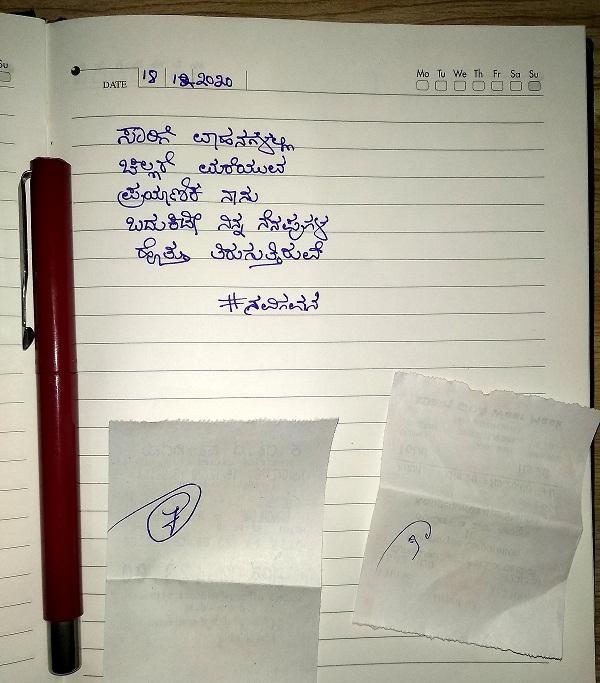 Su
DATE 18 12 2020 Mo Tu We Th Fr Sa Su
ಸಾರಿಗೆ ವಾಹನಗಳಲ್ಲಿ
ಚಿಲ್ಲರೆ ಮರೆಯುವ
ಪ್ರಯಾಣಿಕ ನಾನು
ಬದುಕಿಡೀ ನಿನ್ನ ನೆನಪುಗಳ
ಹೊತ್ತು ತಿರುಗುತ್ತಿರುವೆ
#ಕವಿಗವನ
7